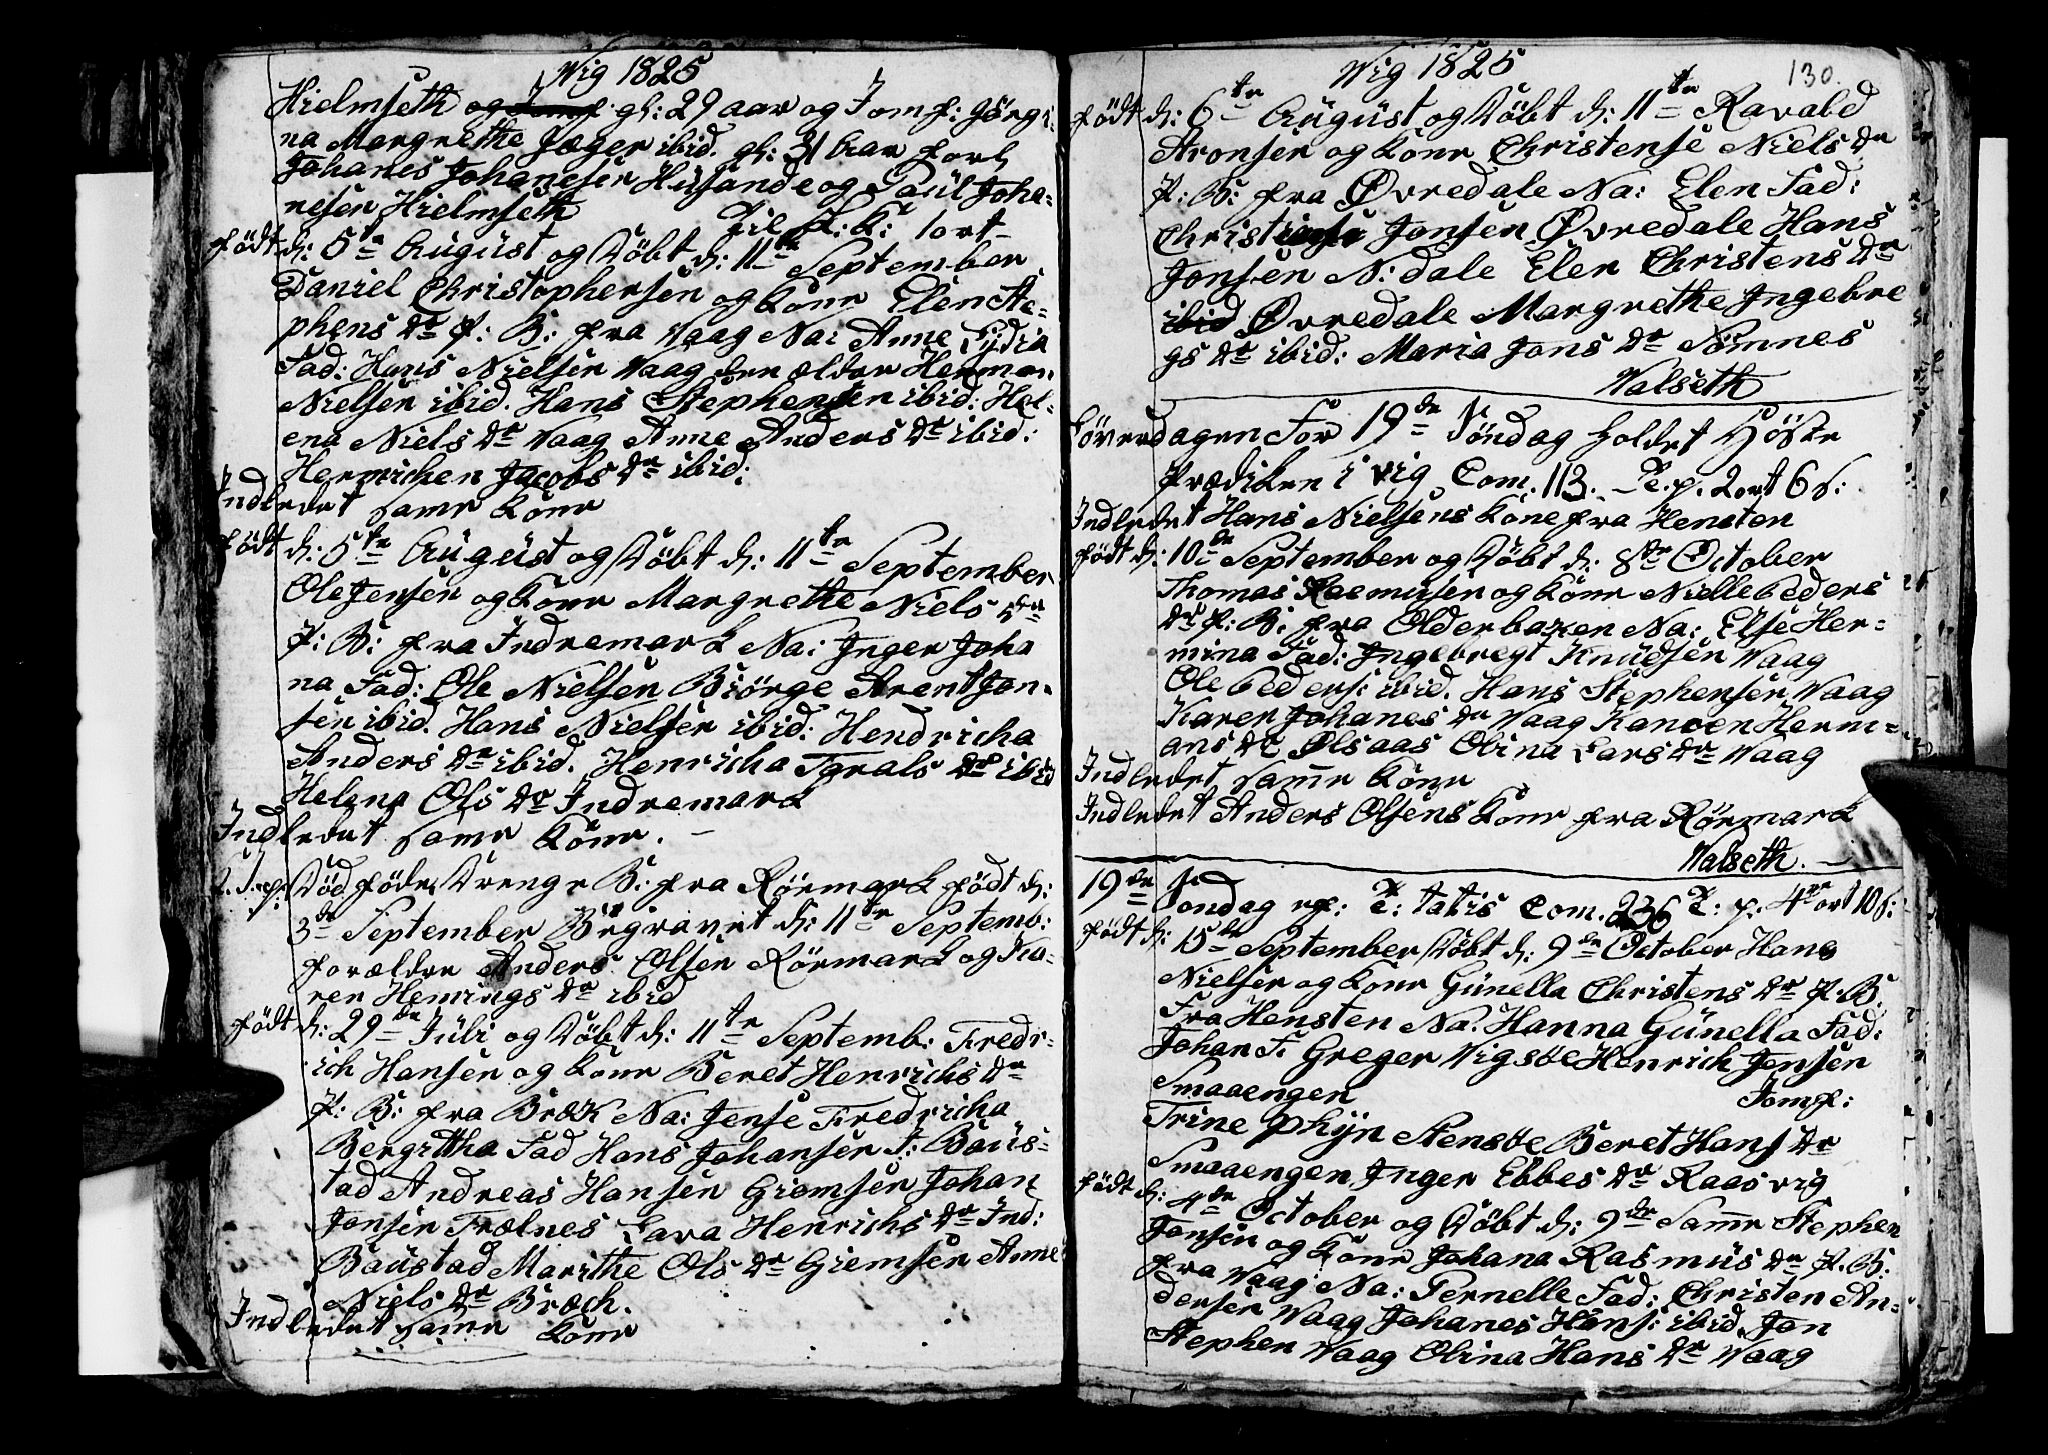 Wig 1825
Hielmseth og Jomf: gl: 29 aar og Jomf: Jörgi-
na Margrethe Jæger ibid. gl: 31 Aar forl
Johanes Johanesen Husande og Paul Joha-
nesen Hielmseth Til H: K: 1 ort
födt d: 5te August og Döbt d: 11te September
Daniel Christophersen og Kone Elen Ste-
phens Dr P: B: fra Vaag Na: Anne Lydia
Fad: Hans Nielsen Vaag den ældre Herman
Nielsen ibid. Hans Stephensen ibid: Hel-
ena Niels Dr Vaag Anne Anders Dr ibid:
Henrichen Jacobs Dr ibid:
Indledet samme Kone
födt d: 5te August og Döbt d: 11te September
Ole Jensen og Kone Margrethe Niels Dr
P: B: fra Indremark Na: Inger Joha
na Fad: Ole Nielsen Biörge Arent Jon-
sen ibid. Hans Nielsen ibid: Hendricha
Anders Dr ibid. Henricha Tarals Dr ibid
Helena Ols Dr Indremark
Indledet samme Kone.
Död födt Drenge B: fra Rörmark födt d:
3de September Begravet d: 11te Septemb:
forældre Anders Olsen Rörmark og Ka-
ren Hemings Dr ibid
födt d: 29de Juli og Döbt d: 11te Septemb: Fredr-
ich Hansen og Kone Beret Henrichs Dr
P: B: fra Bræk Na: Jense Fredricha
Bergitha Fad Hans Johansen I: Baus-
tad Andreas Hansen Giemsen Johan
Jonsen Trælnes Lava Henrichs Dr Ind:
Baustad Marithe Ols Dr Giemsen Anne
Niels Dr Bræch.
Indledet samme Kone
Wig 1825 130.
födt d: 6te August og Döbt d: 11te Ravald
Aronsen og Kone Christense Niels Dr
P: B: fra Øvredale Na: Elen Fad:
Christense Jonsen Øvredale Hans
Jonsen N: dale Elen Christens Dr
ibid Øvredale Margrethe Ingebre
gs Dr ibid: Maria Jons Dr Sömnes
Valseth
Löverdagen For 19de Söndag holdet Höste
Prædiken i vig Com. 113. - T. p. 2 ort 6 s:
Indledet Hans Nielsens Kone fra Hensten
födt d: 10de September og Döbt d: 8de October
Thomas Rasmusen og Kone Nielle Peders
Dr P: B: fra Olderbaxen Na: Else Her-
mina Fad: Ingebregt Knudsen Vaag
Ole Peders: ibid. Hans Stephensen Vaag
Karen Johanes Dr Vaag Kanoen Herm-
ans Dr Olsaas Olina Lars Dr Vaag
Indledet samme Kone
Indledet Anders Olsens Kone fra Rörmark
Valseth.
19de Söndag ep: T: tatis Com. 236 T: p: 4re ort 10 s:
födt d: 15de September Döbt d: 9de October Hans
Nielsen og Kone Gunella Christens Dr P: B.
Fra Hensten Na: Hanna Gunella Fad:
Johan F. Greger Vigsöe Henrich Jensen
Smaaengen Jomf:
Trine Phijn Stensöe Beret Hans Dr
Smaaengen Inger Ebbes Dr Raasvig
födt d: 4de October og Döbt d: 9de Samme Stephen
Jonsen og Kone Johana Rasmus Dr P. B:
fra Vaag Na: Pernelle Fad: Christen An-
dersen Vaag Johanes Hans: ibid. Jon
Stephen Vaag Olina Hans Dr Vaag